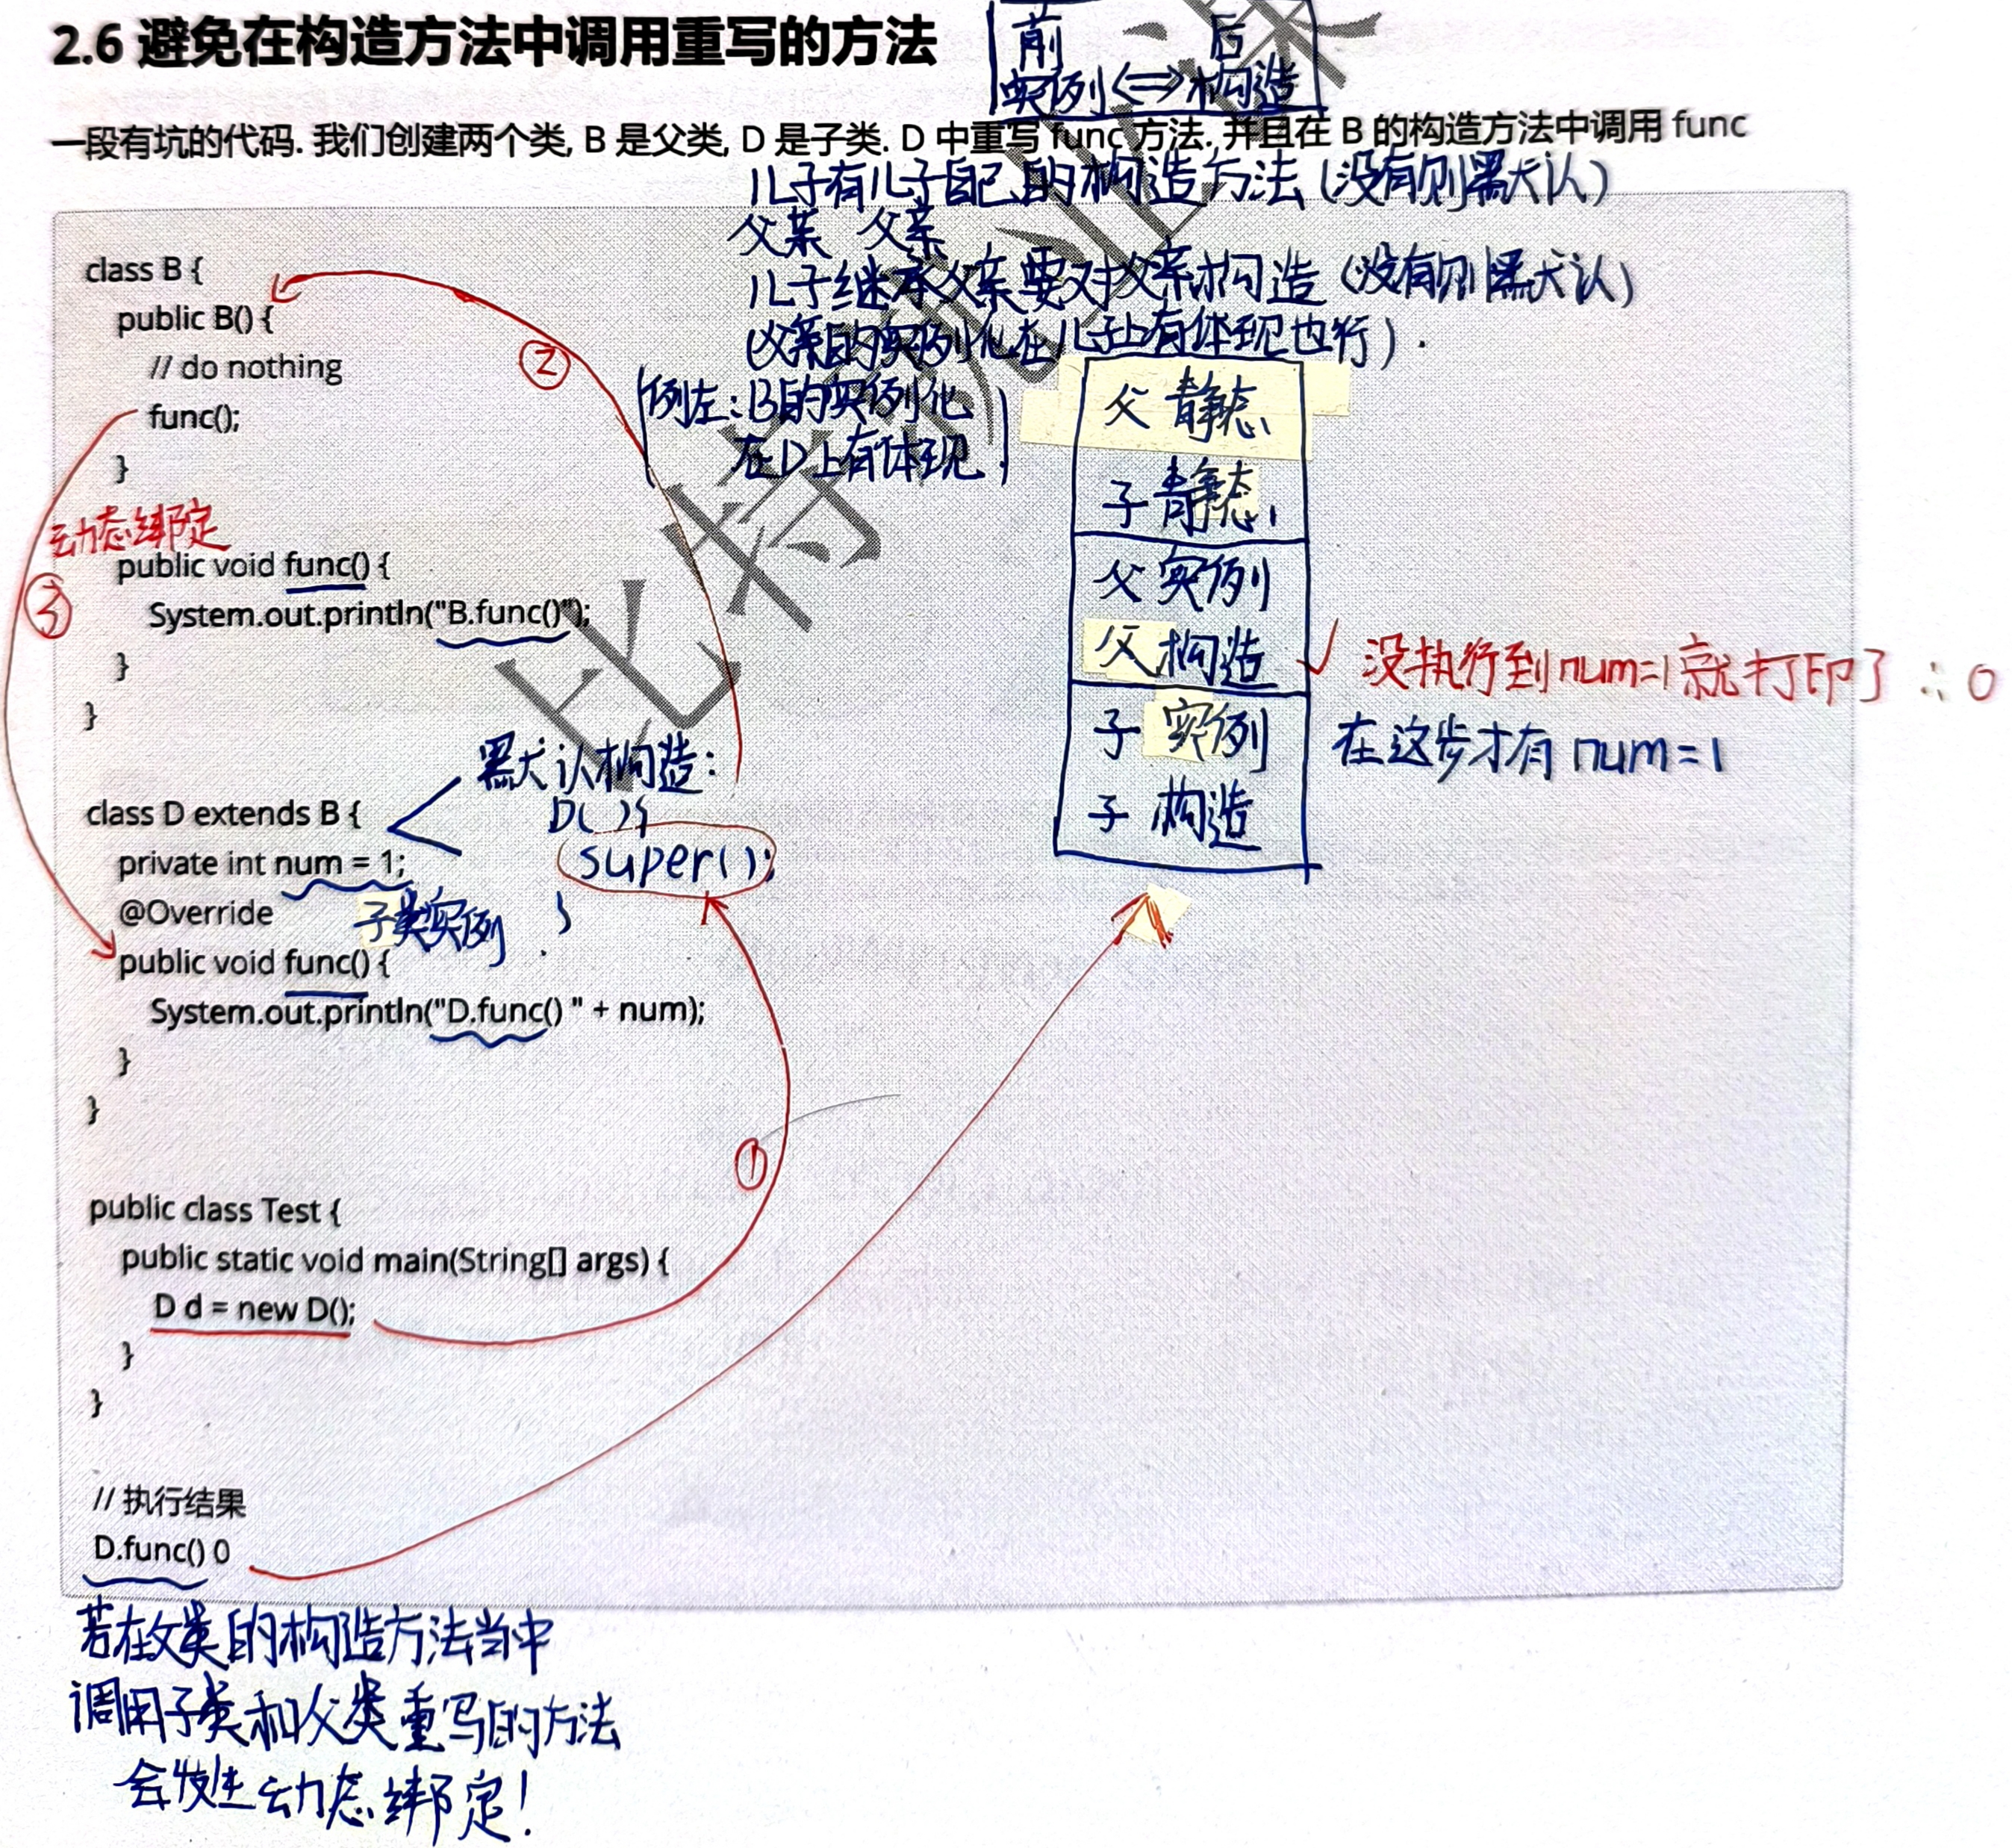 2.6 避免在构造方法中调用重写的方法
前 、 后
实例<=>构造
一段有坑的代码. 我们创建两个类, B 是父类, D 是子类. D 中重写 func 方法. 并且在 B 的构造方法中调用 func
儿子有儿子自己的构造方法(没有则默认)
父亲 父亲
儿子继承父亲要对父亲构造(没有则默认)
(父亲的实例化在儿子上有体现也行).
(例左:B的实例化
在D上有体现)
class B {
public B() {
// do nothing
func();
}
②
动态绑定
③
public void func() {
System.out.println("B.func()");
}
}
父 静态
子 静态
父 实例
父 构造
子 实例
子 构造
✓ 没执行到num=1就打印了 ∴0
在这步才有 num=1
默认构造:
D( ){
super();
}
class D extends B {
private int num = 1;
子类实例
@Override
public void func() {
System.out.println("D.func() " + num);
}
}
①
public class Test {
public static void main(String[] args) {
D d = new D();
}
}
// 执行结果
D.func() 0
若在父类的构造方法当中
调用子类和父类重写的方法
会发生动态绑定!
比特